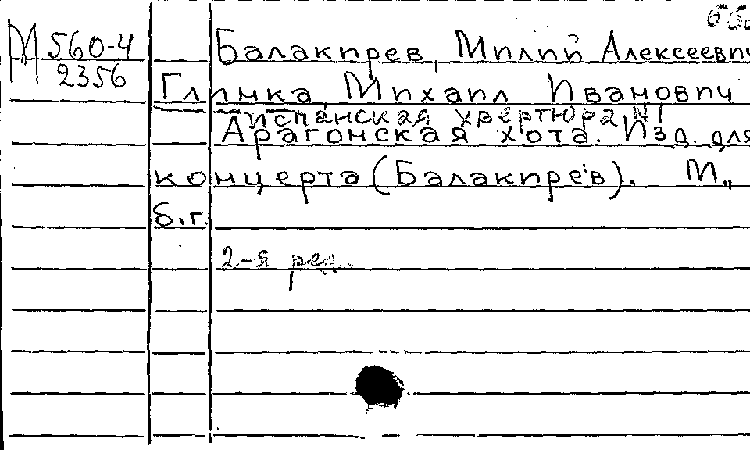 М 560-4
2356
Балакирев, Милий Алексеевич
Глинка, Михаил Иванович
Испанская увертюра №1
Арагонская хота. Изд. для
концерта (Балакирев). М.,
б.г.
2-я ред.